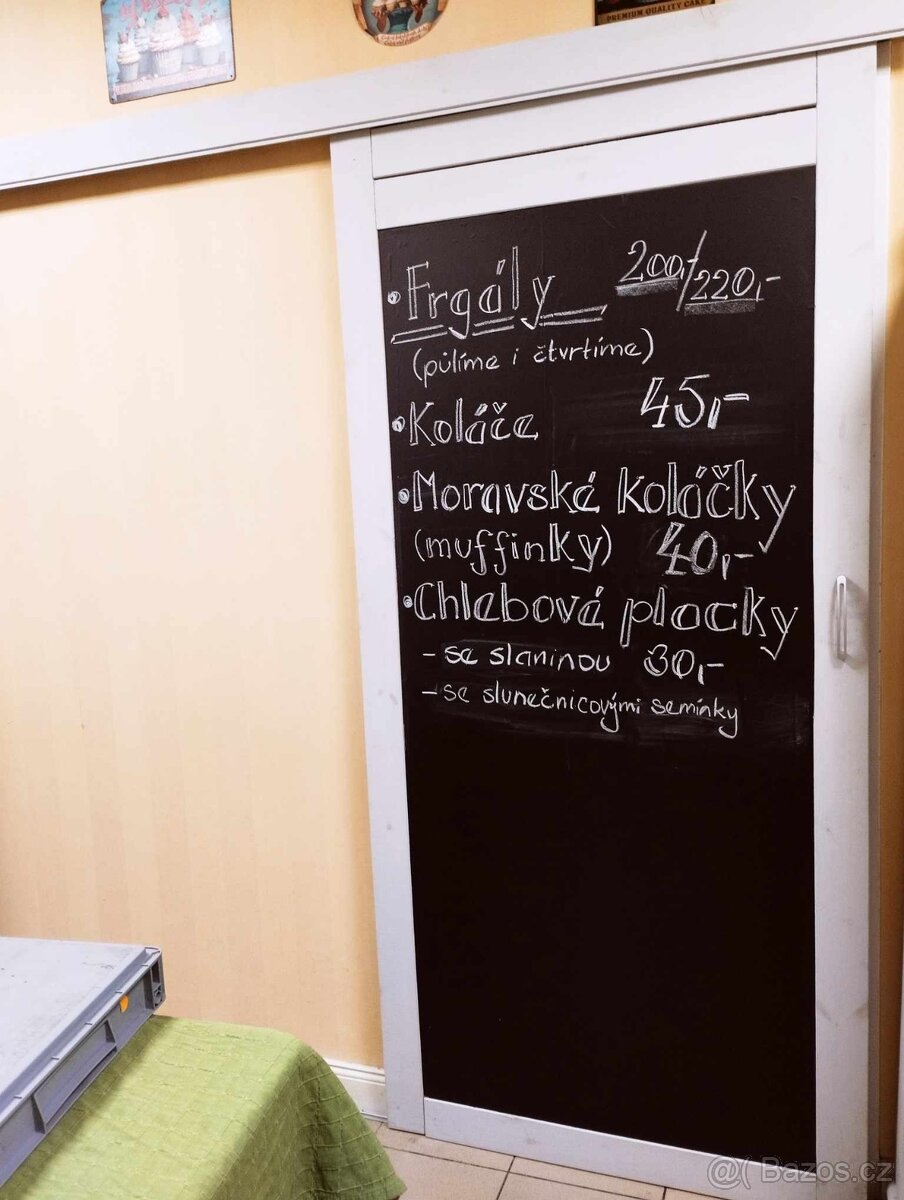 PREMIUM QUALITY CAKE
• Frgály 200,-/220,-
(půlíme i čtvrtíme)
• Koláče 45,-
• Moravské koláčky
(muffinky) 40,-
• Chlebové placky
- se slaninou 30,-
- se slunečnicovými semínky
@( Bazos.cz